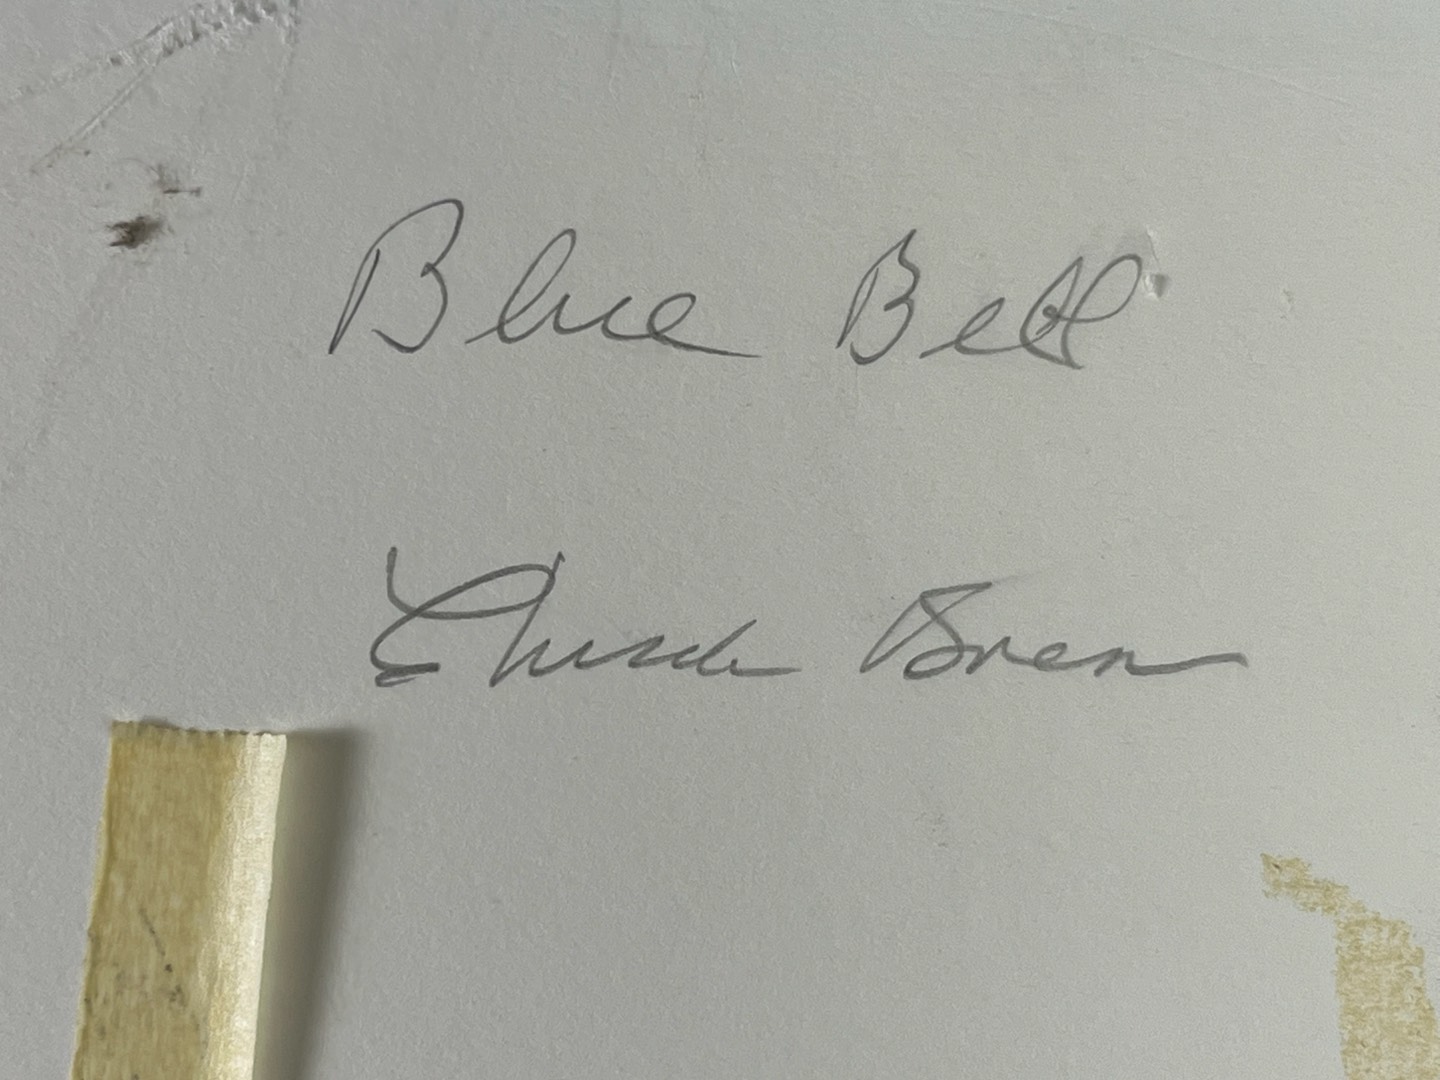 Blue Bell
Chuck Bren